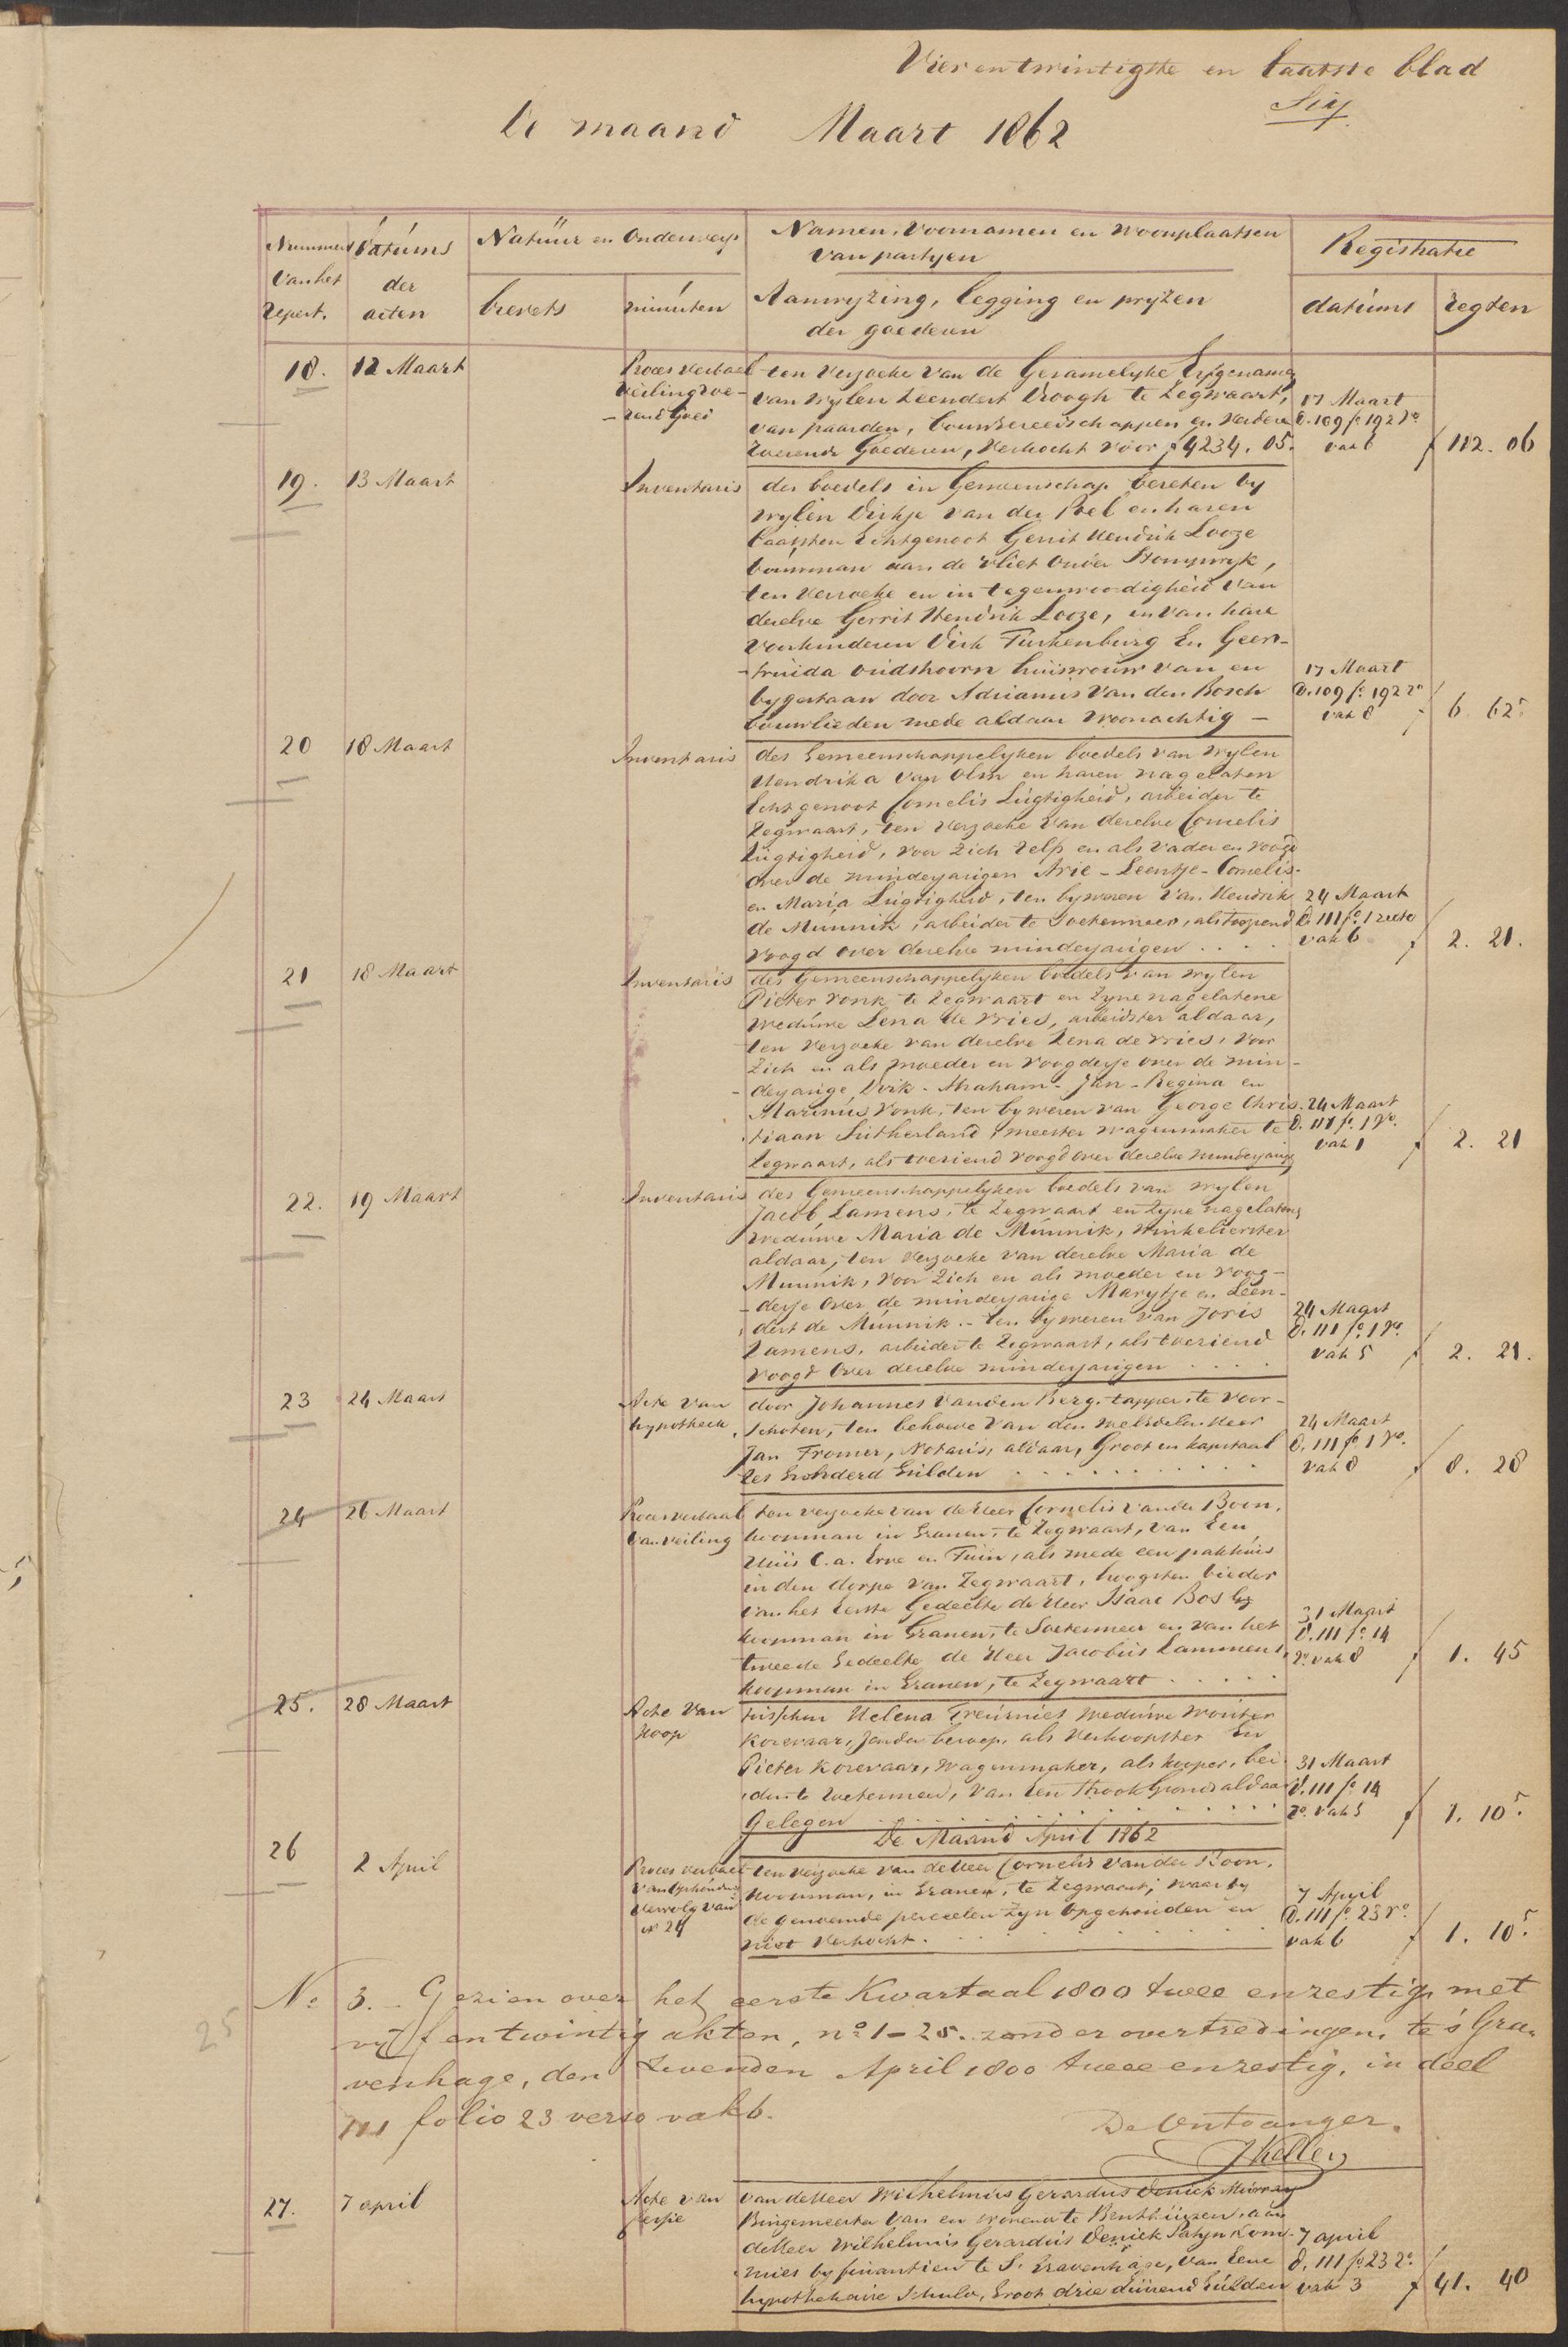 Vierentwintigste en laatste blad
de maand Maart 1862
Nummers van het repert.
datums der acten
Natuur en Onderwerp
brevets
minuten
Namen, Voornamen en Woonplaatsen
van partyen
Aanwyzing, legging en pryzen
der goederen
Registratie
datums
regten
18. 12 Maart
Proces verbaal
veiling roe-
-rend goed
ten verzoeke van de Gezamelyke Erfgenamen
van wylen Leendert Droogh te Zegwaart,
van paarden, bouwgereedschappen en verdere
roerende Goederen, verkocht voor f 4234.05.
17 Maart
D. 109 fo 192 vo
vak 6
f 112.06
19. 13 Maart
Inventaris
des boedels in Gemeenschap bezeten by
wylen Dirkje van der Poel en haren
laatsten Echtgenoot Gerrit Hendrik Looze
bouwman aan de Vliet onder Stompwyk,
ten verzoeke en in tegenwoordigheid van
dezelve Gerrit Hendrik Looze, en van hare
voorkinderen Dirk Turkenburg En Geer-
-truida Oudshoorn huisvrouw van en
bygestaan door Adrianus van den Bosch
bouwlieden mede aldaar woonachtig -
17 Maart
D. 109 fo 192 vo
vak 8
f 6.62 5
20 18 Maart
Inventaris
des Gemeenschappelyken boedels van wylen
Hendrika van Olm en haren nagelaten
Echtgenoot Cornelis Lugtigheid, arbeider te
Zegwaart, ten verzoeke van dezelve Cornelis
Lugtigheid, voor Zich Zelf en als vader en voogd
over de minderjarigen Arie - Leentje - Cornelis
en Maria Lugtigheid, ten bywezen van Hendrik
de Munnik, arbeider te Soetermeer, als toeziend
voogd over dezelve minderjarigen . . . .
24 Maart
D. 111 fo 1 recto
vak 6
f 2.21.
21 18 Maart
Inventaris
des Gemeenschappelyken boedels van wylen
Pieter Vonk te Zegwaart en Zyne nagelatene
weduwe Lena de Vries, arbeidster aldaar,
ten verzoeke van dezelve Lena de Vries, voor
Zich en als moeder en voogdesse over de min-
-derjarige, Dirk - Abraham - Jan - Regina en
Marinus Vonk, ten bywezen van George Chris-
tiaan Sutherland, meester wagenmaker te
Zegwaart, als toeziend voogd over dezelve minderjarige
24 Maart
D. 111 fo 1 vo.
vak 1
f 2.21
22. 19 Maart
Inventaris
des Gemeenschappelyken boedels van wylen
Jacob Lamens, te Zegwaart en Zyne nagelatene
weduwe Maria de Munnik, Winkelierster
aldaar, ten verzoeke van dezelve Maria de
Munnik, voor Zich en als moeder en voog-
-desse over de minderjarige Marytje en Leen-
dert de Munnik - ten bywezen van Joris
Lamens, arbeider te Zegwaart, als toeziend
voogd over dezelve minderjarigen . . . .
24 Maart
D. 111 fo 1 vo.
vak 5
f 2.21.
23 24 Maart
Acte van
hypotheek
door Johannes van den Berg, tapper, te Voor-
schoten, ten behoeve van den weledelen Heer
Jan Fromer, Notaris, aldaar, Groot en kapitaal
zes honderd Gulden . . . . . . . . . .
24 Maart
D. 111 fo 1 vo.
vak 8
f 8.28
24 26 Maart
Proces verbaal
van veiling
ten verzoeke van de Heer Cornelis van der Boon,
koopman in Granen, te Zegwaart, van Een
Huis C.a. Erve en Tuin, als mede een pakhuis
in den dorpe van Zegwaart, hoogsten bieder
van het Eerste Gedeelte de Heer Isaac Bos
koopman in Granen, te Soetermeer en van het
tweede Gedeelte de Heer Jacobus Lammens,
koopman in Granen, te Zegwaart . . . . .
31 Maart
D. 111 fo 14
vo vak 8
f 1.45
25. 28 Maart
Acte van
Koop
tusschen Helena Treurniet weduwe Wouter
Korevaar, Zonder beroep, als verkoopster En
Pieter Korevaar, Wagenmaker, als kooper, bei-
den te Zoetermeer, van Een Strook Grond aldaar
Gelegen . . . . . . . . . . . .
31 Maart
D. 111 fo 14
vo. vak 5
f 1.10 5.
De Maand April 1862
26 2 April
Proces verbaal
van Ophouding
vervolg van
no 24
ten verzoeke van de Heer Cornelis van der Boon,
koopman, in Granen, te Zegwaart, waar by
de genoemde perceelen Zyn Opgehouden en
niet verkocht. . . . . . . . . .
7 April
D. 111 fo 23 vo.
vak 6
f 1.10 5.
No 3. - Gezien over het eerste Kwartaal 1800 twee en zestig met
vyf en twintig akten, no 1-25. zonder overtredingen, te 's Gra-
venhage, den Zevenden April 1800 twee en zestig, in deel
111 folio 23 verso vak 6.
25
De Ontvanger.
JKeller
27. 7 april
Acte van
Cessie
van de Heer Wilhelmus Gerardus Deniek Murray
Burgemeester van en wonende te Benthuizen, aan
de Heer Wilhelmus Gerardus Deniek Patyn Kom-
mies by finantien te S. Gravenhage, van Eene
hypothekaire Schuld, Groot drie duizend Gulden
7 april
D. 111 fo 23 vo.
vak 3
f 41.40